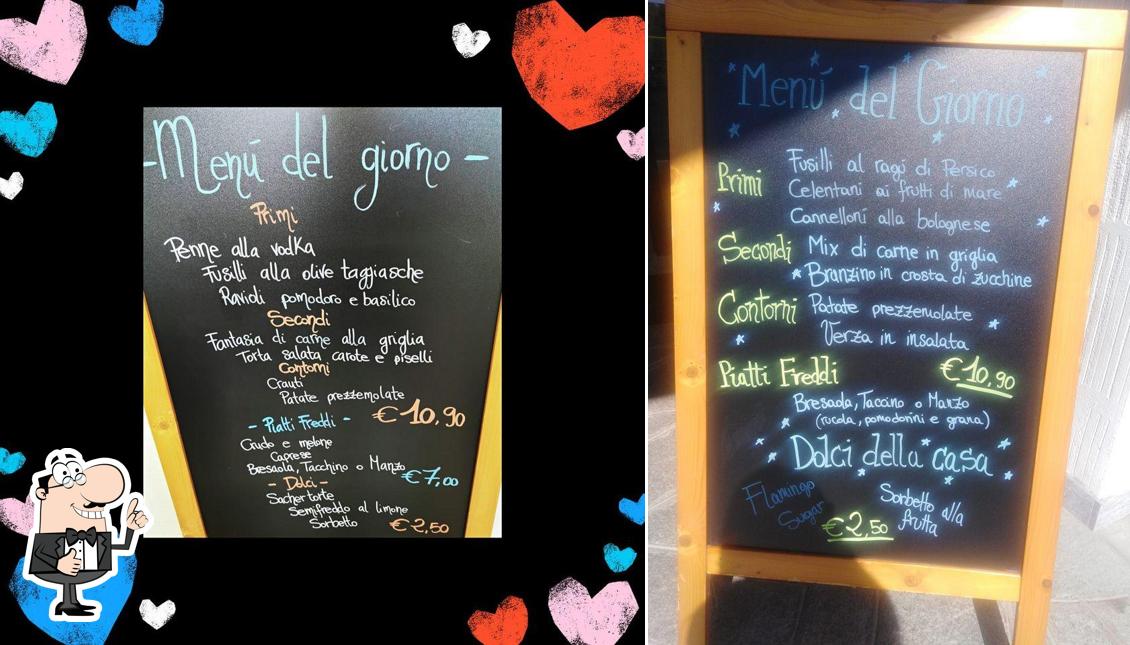 -Menú del giorno-
Primi
Penne alla vodka
Fusilli alla olive taggiasche
Ravioli pomodoro e basilico
Secondi
Fantasia di carne alla griglia
Torta salata carote e piselli
Contorni
Crauti
Patate prezzemolate
€10,90
- Piatti Freddi -
Crudo e melone
Caprese
Bresaola, Tacchino o Manzo
€7,00
- Dolci -
Sachertorte
Semifreddo al limone
Sorbetto
€2,50
Menú del Giorno
Primi
Fusilli al ragú di Persico
Celentani ai frutti di mare
Cannelloni alla bolognese
Secondi
Mix di carne in griglia
Branzino in crosta di zucchine
Contorni
Patate prezzemolate
Verza in insalata
Piatti Freddi
€10,90
Bresaola, Taccino o Manzo
(rucola, pomodorini e grana)
Dolci della casa
Flamingo
Sugar
Sorbetto alla
frutta
€2,50